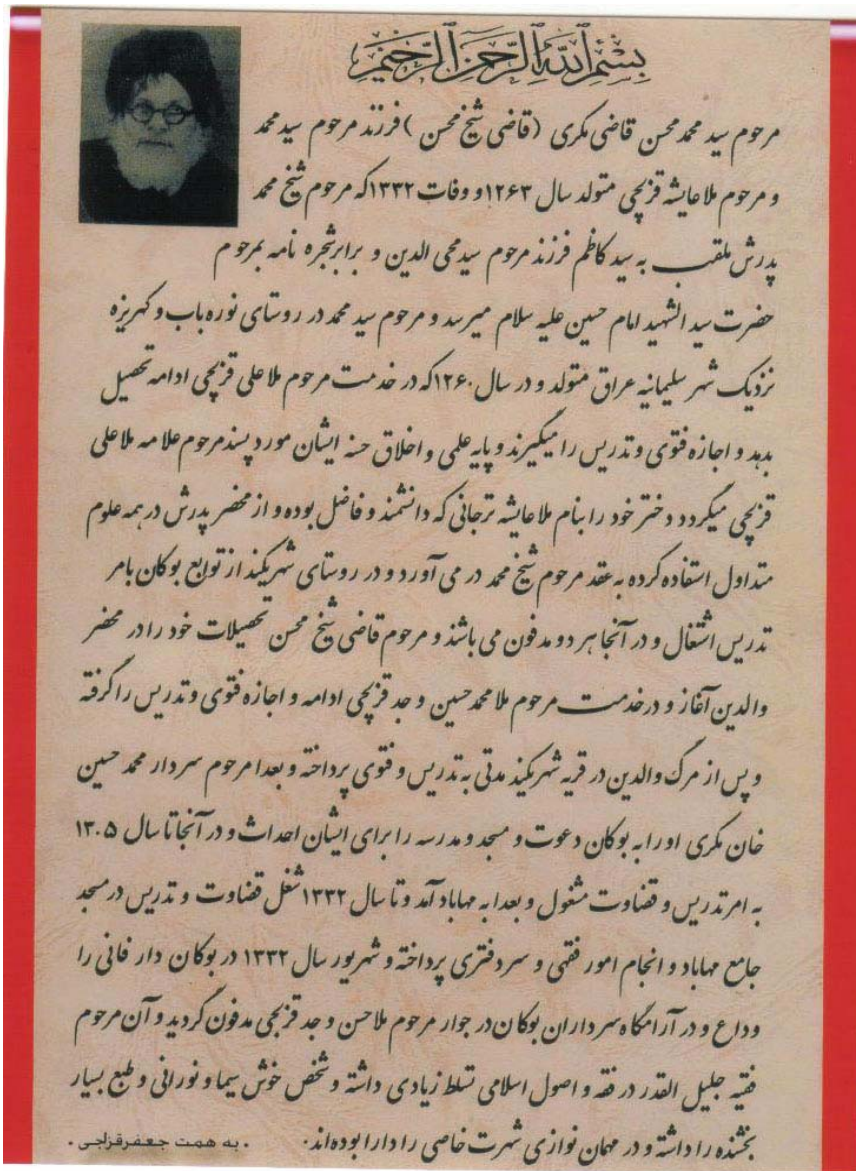 بسم الله الرحمن الرحیم
مرحوم سید محمد محسن قاضی مکری (قاضی شیخ محسن) فرزند مرحوم سید محمد
و مرحوم ملا عایشه قزلجی متولد سال ۱۲۶۳ و وفات ۱۳۳۲ که مرحوم شیخ محمد
پدرش ملقب به سید کاظم فرزند مرحوم سید محی الدین و برابر شجره نامه بمرحوم
حضرت سید الشهید امام حسین علیه سلام میرسد و مرحوم سید محمد در روستای نوره باب و کهریزه
نزدیک شهر سلیمانیه عراق متولد و در سال ۱۲۶۰ که در خدمت مرحوم ملا علی قزلجی ادامه تحصیل
بدهد و اجازه فتوی و تدریس را میگیرند و پایه علمی و اخلاق حسنه ایشان مورد پسند مرحوم علامه ملا علی
قزلجی میگردد دختر خود را بنام ملا عایشه ترجانی که دانشمند و فاضل بوده و از محضر پدرش در همه علوم
متداول استفاده کرده به عقد مرحوم شیخ محمد در می آورد و در روستای شهریکند از توابع بوکان بامر
تدریس اشتغال و در آنجا هر دو مدفون می باشند و مرحوم قاضی شیخ محسن تحصیلات خود را در محضر
والدین آغاز و در خدمت مرحوم ملا محمد حسین وجد قزلجی ادامه و اجازه فتوی و تدریس را گرفته
و پس از مرگ والدین در قریه شهریکند مدتی به تدریس و فتوی پرداخته و بعدا مرحوم سردار محمد حسین
خان مکری او را به بوکان دعوت و مسجد و مدرسه را برای ایشان احداث و در آنجا تا سال ۱۳۰۵
به امر تدریس و قضاوت مشغول و بعدا به مهاباد آمد و تا سال ۱۳۳۲ شغل قضاوت و تدریس در مسجد
جامع مهاباد و انجام امور فقهی و سر دفتری پرداخته و شهریور سال ۱۳۳۲ در بوکان دار فانی را
وداع و در آرامگاه سرداران بوکان در جوار مرحوم ملا حسن وجد قزلجی مدفون گردید و آن مرحوم
فقیه جلیل القدر در فقه و اصول اسلامی تسلط زیادی داشته و شخص خوش سیما و نورانی و طبع بسیار
بخشنده را داشته و در مهمان نوازی شهرت خاصی را دارا بوده اند.
. به همت جعفر قزلجی .